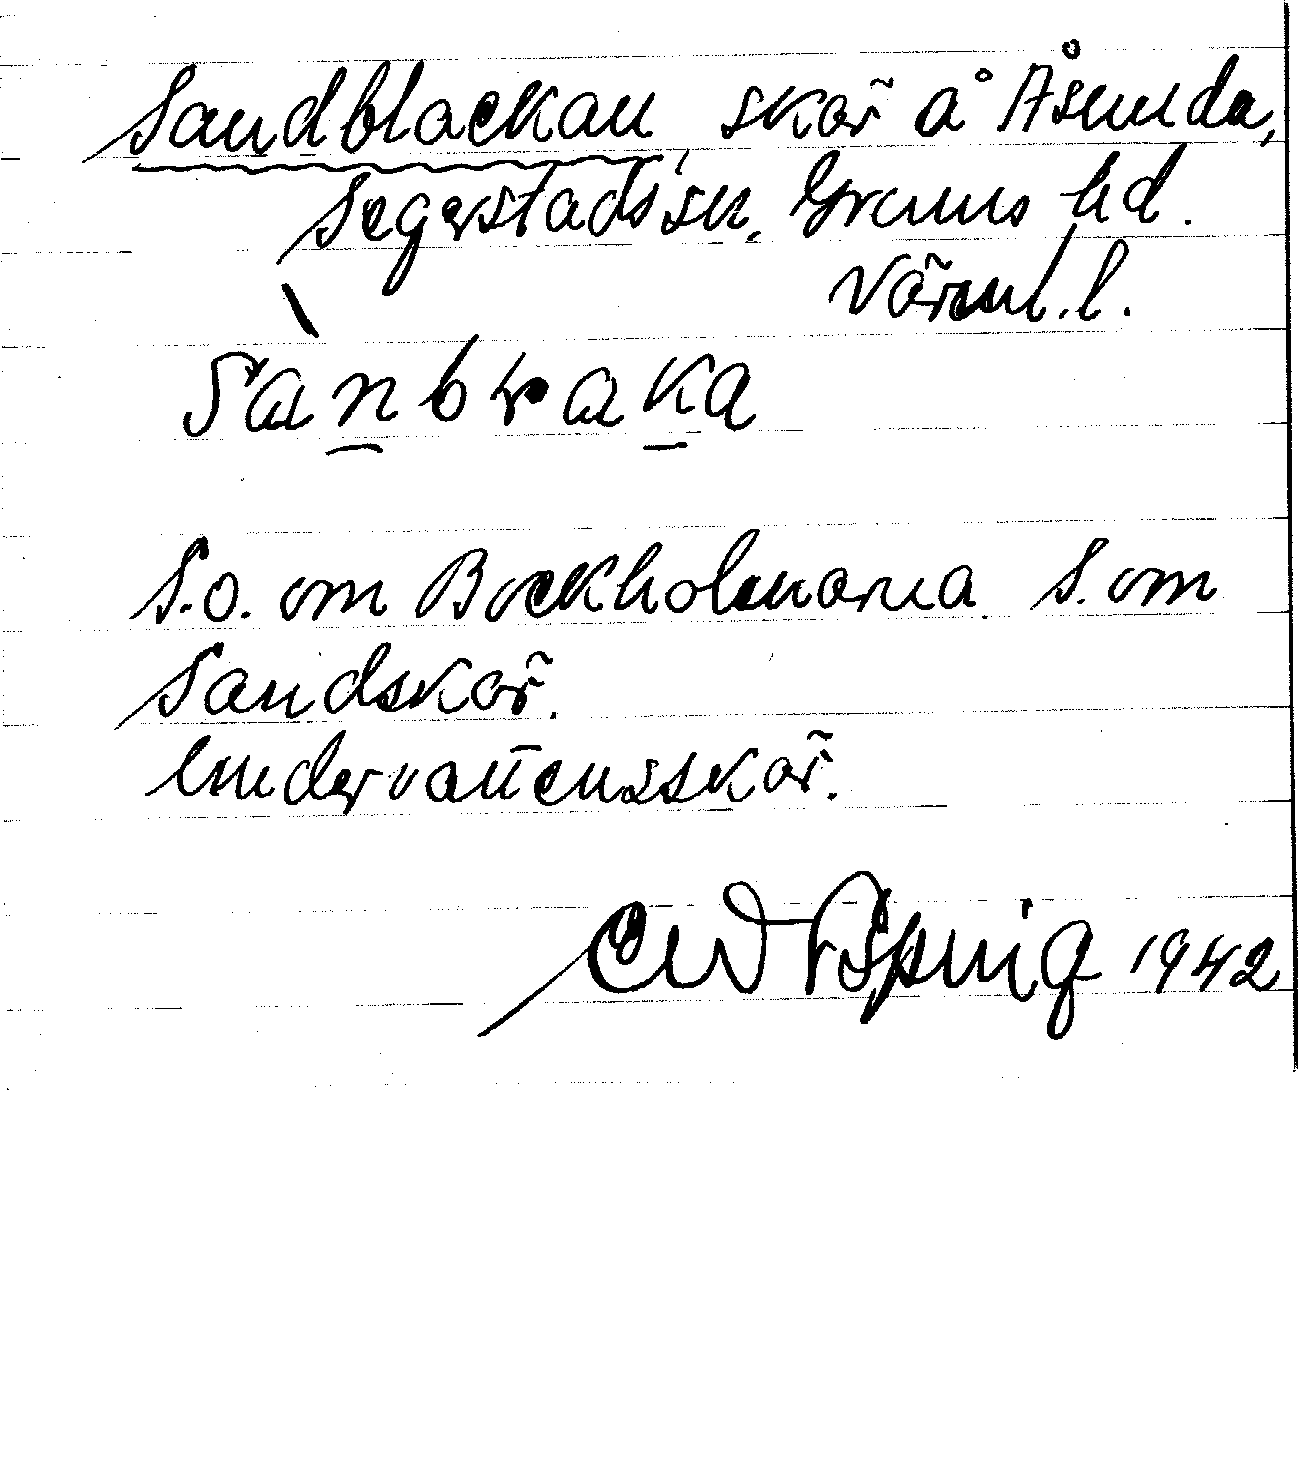 Sandblackan, skär å Åsunda,
Segerstads sn. Grums hd.
Värml. l.
S.o. om Bockholmarna S. om
Sandskär.
Undervattensskär.
1942